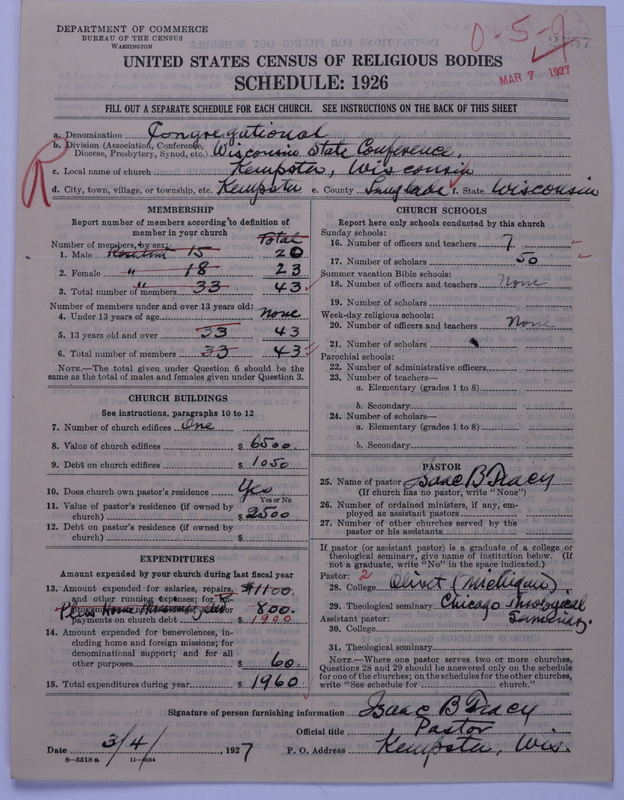 DEPARTMENT OF COMMERCE
BUREAU OF THE CENSUS
WASHINGTON
0-5-
MAR 7 1927
UNITED STATES CENSUS OF RELIGIOUS BODIES
SCHEDULE: 1926
FILL OUT A SEPARATE SCHEDULE FOR EACH CHURCH. SEE INSTRUCTIONS ON THE BACK OF THIS SHEET
R
a. Denomination Congregational
b. Division (Association, Conference, Diocese, Presbytery, Synod, etc.) Wisconsin State Conference,
c. Local name of church Kempster, Wisconsin
d. City, town, village, or township, etc. Kempster e. County Langlade f. State Wisconsin
MEMBERSHIP
Report number of members according to definition of
member in your church
Number of members, by sex: Total
1. Male Resident 15 20
2. Female " 18 23
3. Total number of members " 33 43
Number of members under and over 13 years old:
4. Under 13 years of age none
5. 13 years old and over 33 43
6. Total number of members 33 43
NOTE.—The total given under Question 6 should be
same as the total of males and females given under Question 3.
CHURCH BUILDINGS
See instructions, paragraphs 10 to 12
7. Number of church edifices One
8. Value of church edifices $ 6500.
9. Debt on church edifices $ 1050
10. Does church own pastor's residence Yes
Yes or No
11. Value of pastor's residence (if owned by
church) $ 2500
12. Debt on pastor's residence (if owned by
church) $
EXPENDITURES
Amount expended by your church during last fiscal year
13. Amount expended for salaries, repairs, $1100.
and other running expenses; for
800.
payments on church debt $ 1900
14. Amount expended for benevolences, in-
cluding home and foreign missions; for
denominational support; and for all
other purposes $ 60.
15. Total expenditures during year $ 1960.
CHURCH SCHOOLS
Report here only schools conducted by this church
Sunday schools:
16. Number of officers and teachers 7
17. Number of scholars 50
Summer vacation Bible schools:
18. Number of officers and teachers None
19. Number of scholars
Week-day religious schools:
20. Number of officers and teachers None
21. Number of scholars
Parochial schools:
22. Number of administrative officers
23. Number of teachers—
a. Elementary (grades 1 to 8)
b. Secondary
24. Number of scholars—
a. Elementary (grades 1 to 8)
b. Secondary
PASTOR
25. Name of pastor Isaac B Tracy
(If church has no pastor, write "None")
26. Number of ordained ministers, if any, em-
ployed as assistant pastors
27. Number of other churches served by the
pastor or his assistants
If pastor (or assistant pastor) is a graduate of a college or
theological seminary, give name of institution below. (If
not a graduate, write "No" in the space indicated.)
Pastor: 2
28. College Olivet (Michigan).
29. Theological seminary Chicago Theological
Assistant pastor: Seminary.
30. College
31. Theological seminary
NOTE.—Where one pastor serves two or more churches,
Questions 28 and 29 should be answered only on the schedule
for one of the churches; on the schedules for the other churches,
write "See schedule for church."
Signature of person furnishing information Isaac B Tracy
Official title Pastor
Date 3/4, 1927 P. O. Address Kempster, Wis.
8-5518 a 11-9034